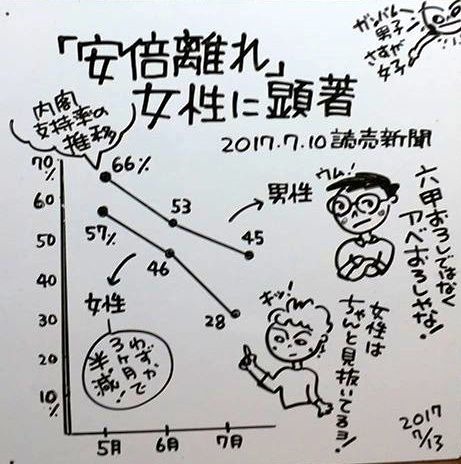 「安倍離れ」
女性に顕著
2017.7.10 読売新聞
ガンバレー
男子ー
さすが
女子
内閣
支持率の
推移
70
%
60
50
40
30
20
10
%
66%
53
45
男性
57%
46
28
女性
わずか
3ヶ月で
半減!
5月
6月
7月
ウム!
六甲おろしではなく
アベおろしやな!
キッ!
女性は
ちゃんと見抜いてるヨ!
2017
7/13